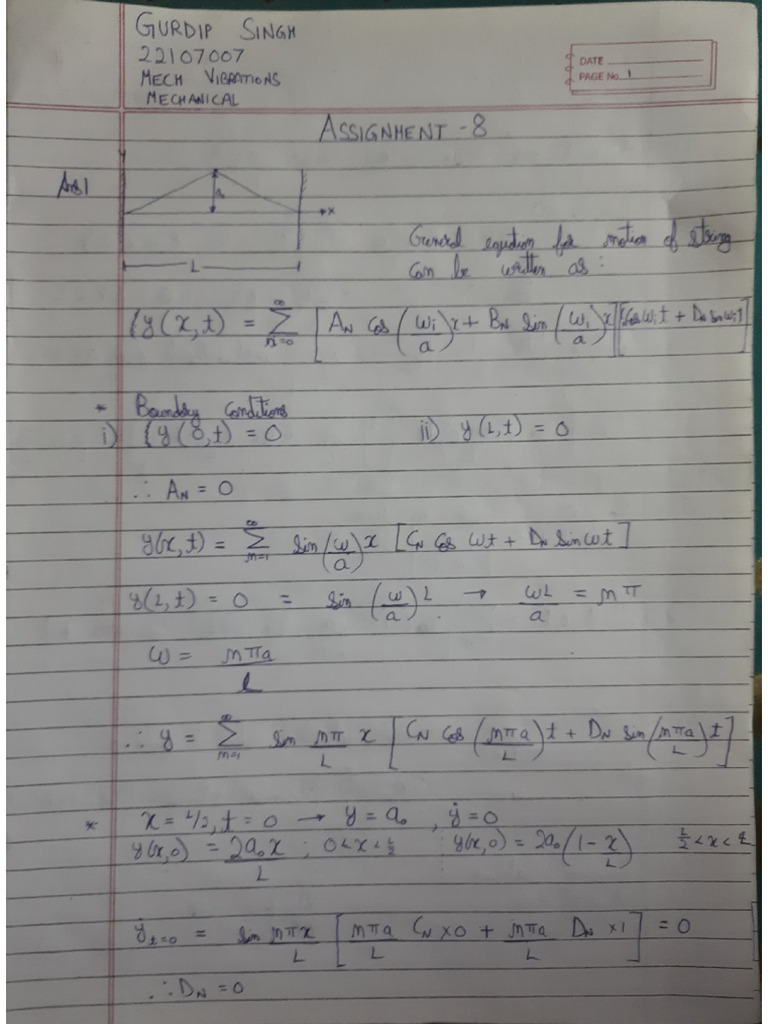 GURDIP SINGH
22107007
MECH VIBRATIONS
MECHANICAL
DATE
PAGE No. 1
ASSIGNMENT - 8
Ans1
y
a₀
x
L
General equation for motion of string
can be written as :
y(x,t) = ∞ Σ n=0 [A_N cos (ωi/a) x + B_N sin (ωi/a) x] [cos ωi t + D_N sin ωi t]
* Boundary Conditions
i) y(0,t) = 0 ii) y(L,t) = 0
∴ A_N = 0
y(x,t) = ∞ Σ n=1 sin (ω/a) x [C_N cos ωt + D_N sin ωt]
y(L,t) = 0 = sin (ω/a) L → ωL/a = nπ
ω = nπa/l
∴ y = ∞ Σ n=1 sin nπ/L x [C_N cos (nπa/L) t + D_N sin (nπa/L) t]
* x = L/2, t = 0 → y = a₀ , ẏ = 0
y(x,0) = 2a₀x/L ; 0 < x < L/2 y(x,0) = 2a₀ (1 - x/L) L/2 < x < L
ẏ t=0 = sin nπx/L [nπa/L C_N × 0 + nπa/L D_N × 1] = 0
∴ D_N = 0